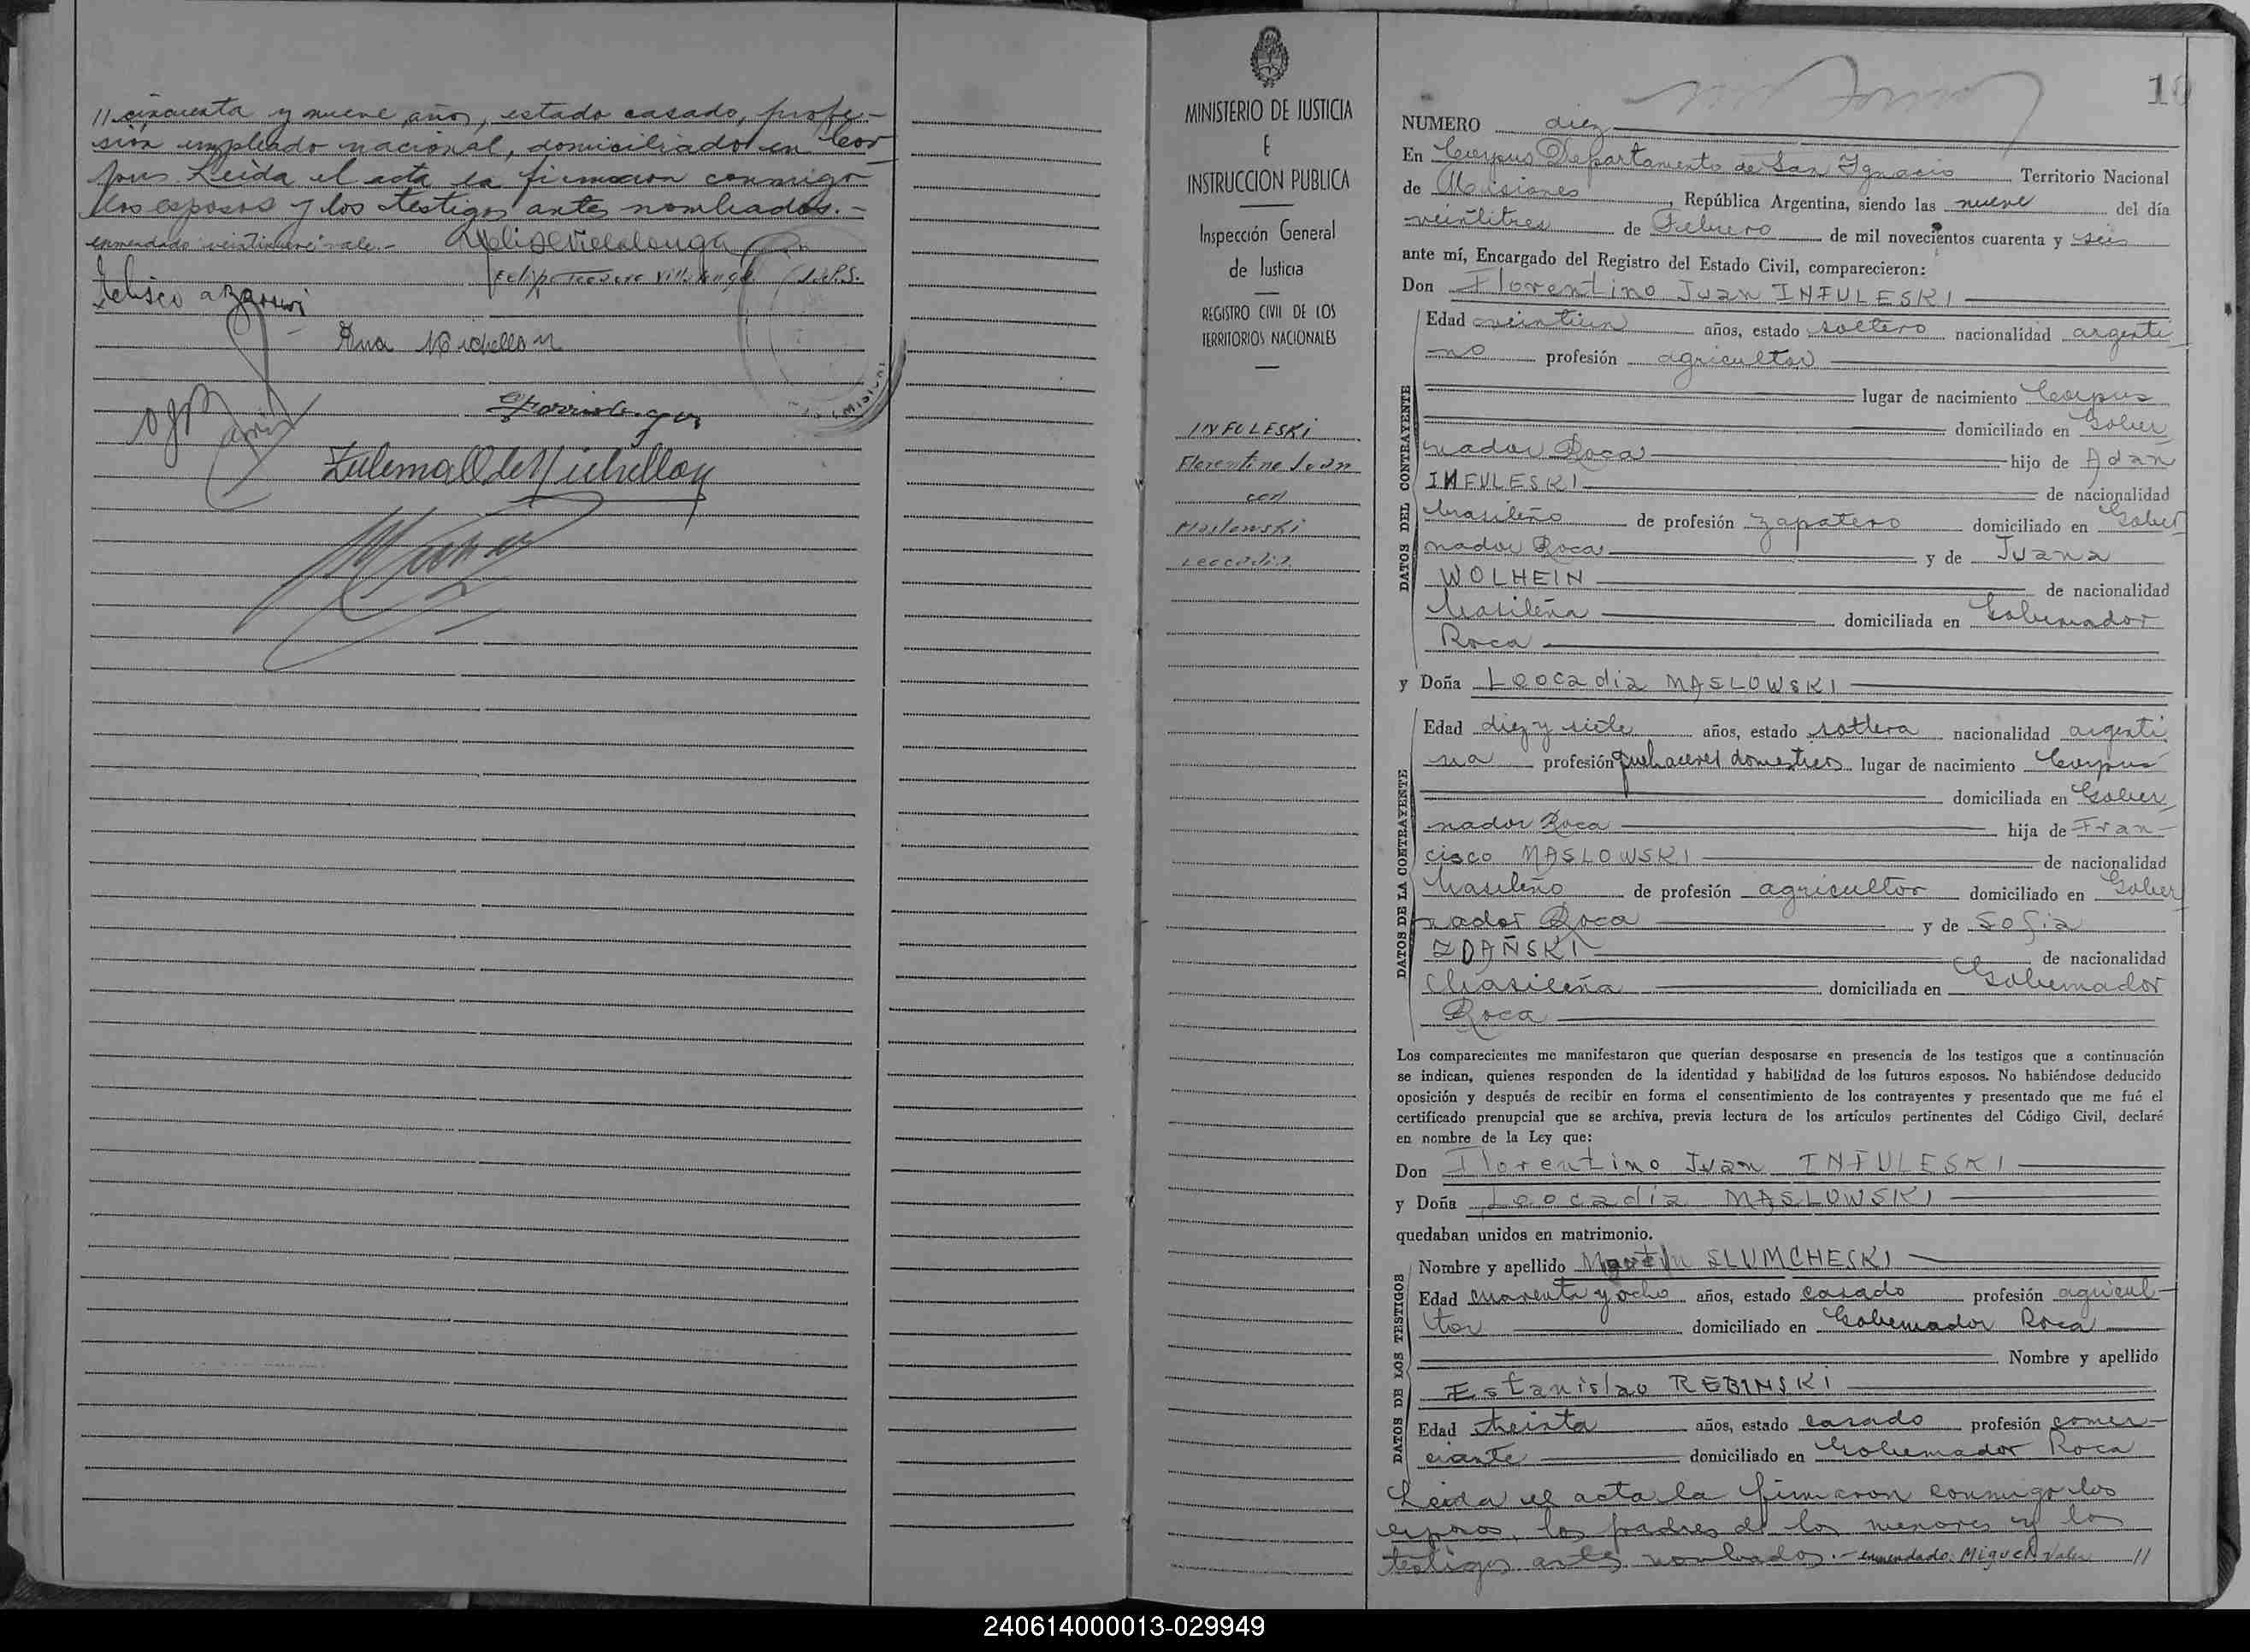 // cincuenta y nueve años, estado casado, profe-
sión empleado nacional, domiciliado en Cor
pus. Leída el acta la firmaron conmigo
los esposos y los testigos antes nombrados.-
enmendado "veintinueve" vale.-
J.d.P.S.
Ana Michellon
Zulema O de Michellon
MINISTERIO DE JUSTICIA
E
INSTRUCCION PUBLICA
Inspección General
de Justicia
REGISTRO CIVIL DE LOS
TERRITORIOS NACIONALES
INFULESKI
Florentino Juan
con
Maslowski
Leocadia
10
NUMERO diez
En Corpus Departamento de San Ignacio Territorio Nacional
de Misiones, República Argentina, siendo las nueve del día
veintitres de Febrero de mil novecientos cuarenta y seis
ante mí, Encargado del Registro del Estado Civil, comparecieron:
Don Florentino Juan INFULESKI
DATOS DEL CONTRAYENTE
Edad veintiun años, estado soltero nacionalidad argenti
no profesión agricultor
lugar de nacimiento Corpus
domiciliado en Gober
nador Roca hijo de Adan
INFULESKI de nacionalidad
brasileño de profesión zapatero domiciliado en Gober
nador Roca y de Juana
WOLHEIN de nacionalidad
brasileña domiciliada en Gobernador
Roca
y Doña Leocadia MASLOWSKI
DATOS DE LA CONTRAYENTE
Edad diez y siete años, estado soltera nacionalidad argenti
na profesión quehaceres domesticos lugar de nacimiento Corpus
domiciliada en Gober
nador Roca hija de Fran-
cisco MASLOWSKI de nacionalidad
brasileño de profesión agricultor domiciliado en Gober
nador Roca y de Sofia
ZDAÑSKI de nacionalidad
brasileña domiciliada en Gobernador
Roca
Los comparecientes me manifestaron que querían desposarse en presencia de los testigos que a continuación
se indican, quienes responden de la identidad y habilidad de los futuros esposos. No habiéndose deducido
oposición y después de recibir en forma el consentimiento de los contrayentes y presentado que me fué el
certificado prenupcial que se archiva, previa lectura de los artículos pertinentes del Código Civil, declaré
en nombre de la Ley que:
Don Florentino Juan INFULESKI
y Doña Leocadia MASLOWSKI
quedaban unidos en matrimonio.
DATOS DE LOS TESTIGOS
Nombre y apellido SLUMCHESKI
Edad cuarenta y ocho años, estado casado profesión agricul-
tor domiciliado en Gobernador Roca
Nombre y apellido
Estanislao REBINSKI
Edad treinta años, estado casado profesión comer-
ciante domiciliado en Gobernador Roca
Leída el acta la firmaron conmigo los
esposos, los padres de los menores y los
testigos antes nombrados.- enmendado: Miguel: Vale //
240614000013-029949